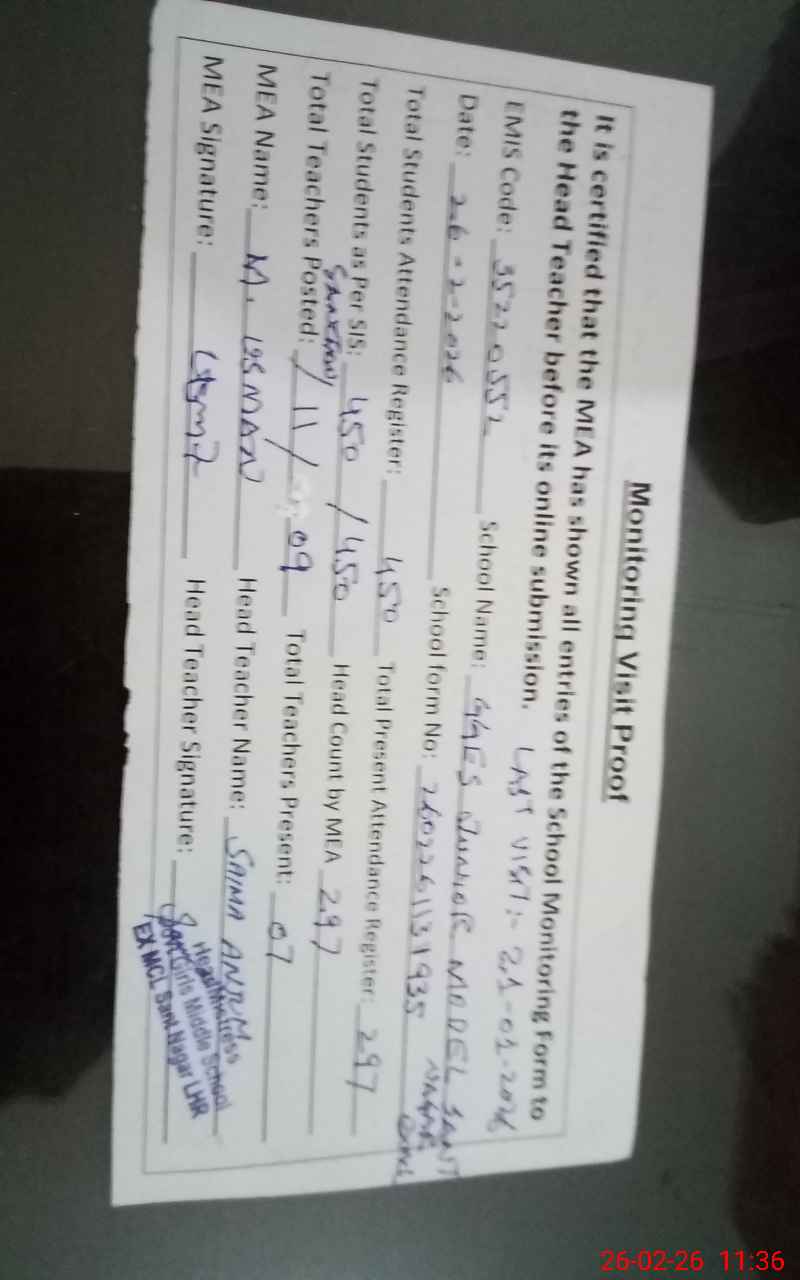 Monitoring Visit Proof
It is certified that the MEA has shown all entries of the School Monitoring Form to
the Head Teacher before its online submission. LAST VISIT:- 21-01-2026
EMIS Code: 35220552 School Name: GGES JUNIOR MODEL SANT NAGAR
Date: 26-2-2026 School form No:
Total Students Attendance Register: 450 Total Present Attendance Register: 297
Total Students as Per SIS: 450 / 450 Head Count by MEA 297
SANCTION
Total Teachers Posted: / 11 / 09 Total Teachers Present: 07
MEA Name: M. USMAN Head Teacher Name: SAIMA ANJUM
MEA Signature: Head Teacher Signature:
Head Mistress
Govt. Girls Middle School
EX MCL Sant Nagar LHR
26-02-26 11:36